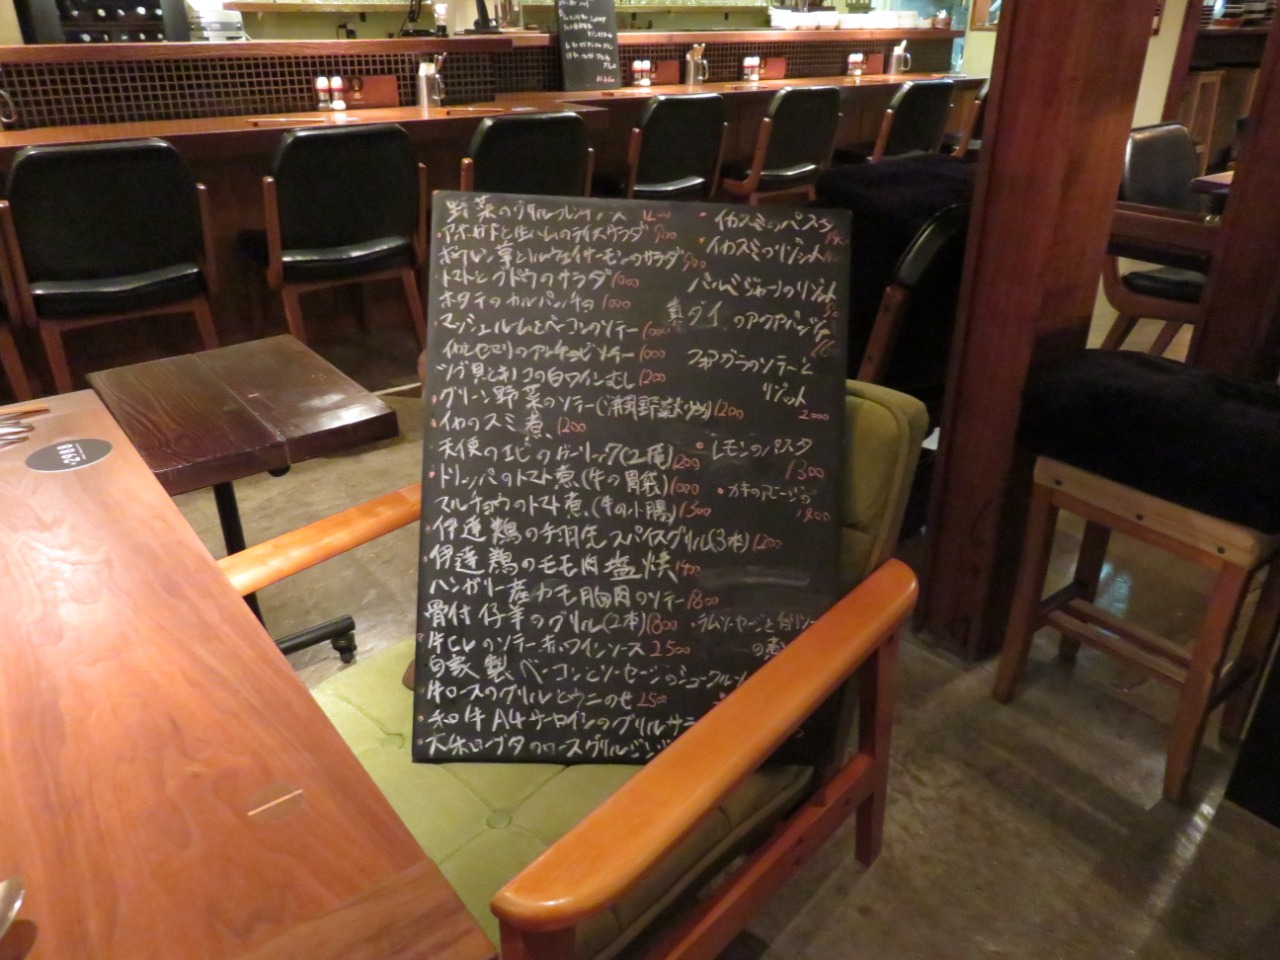 野菜のグリルプレーンソース 1200
アボカドと生ハムのライスサラダ 900
ホウレン草とノルウェイサーモンのサラダ 900
トマトとブドウのサラダ 1000
ホタテのカルパッチョ 1000
マッシュルームとベーコンのソテー 1000
イカとセロリのアンチョビソテー 1000
ツブ貝とキノコの白ワインむし 1200
グリーン野菜のソテー 1200
イカのスミ煮 1200
天使のエビのガーリック(2尾) 1200
トリッパのトマト煮(牛の胃袋) 1000
マルチョウのトマト煮(牛の小腸) 1300
伊達鶏の手羽先スパイスグリル(3本) 1200
伊達鶏のモモ肉塩焼 1400
ハンガリー産カモ胸肉のソテー 1800
骨付仔羊のグリル(2本) 1800
牛ヒレのソテー赤ワインソース 2500
自家製ベーコンとソーセージのシュークルート
牛ロースのグリルとウニのせ 2500
和牛A4サーロインのグリル
ロースグリル
イカスミのパスタ
イカスミのリゾット
パルミジャーノのリゾット
真ダイのアクアパッツァ
フォアグラのソテーと
リゾット
2000
レモンのパスタ
1300
カキのアヒージョ